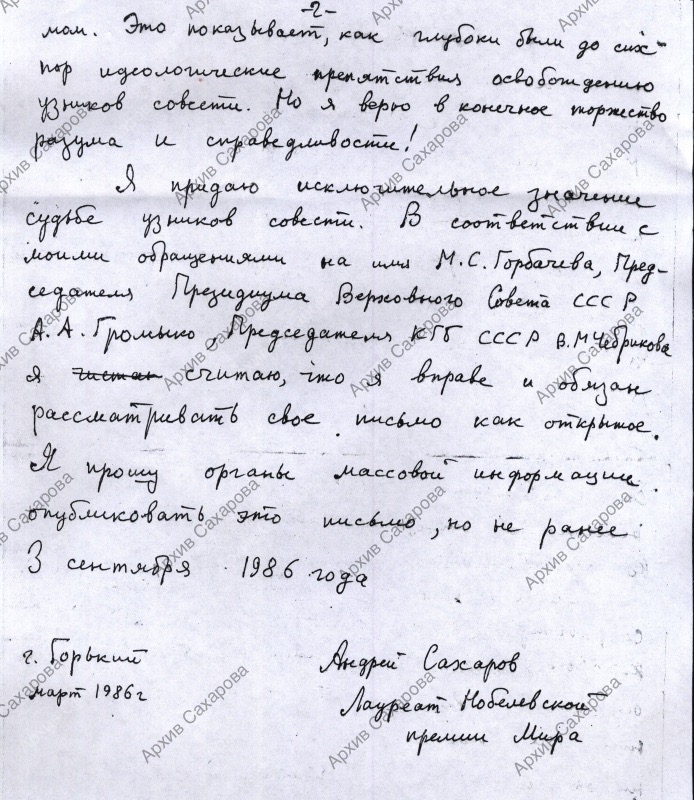 -2-
мом. Это показывает, как глубоки были до сих
пор идеологические препятствия освобождению
узников совести. Но я верю в конечное торжество
разума и справедливости!
Я придаю исключительное значение
судьбе узников совести. В соответствии с
моими обращениями на имя М.С. Горбачева, Пред-
седателя Президиума Верховного Совета СССР
А.А. Громыко, Председателя КГБ СССР В.М Чебрикова
я считаю, что я вправе и обязан
рассматривать свое письмо как открытое.
Я прошу органы массовой информации
опубликовать это письмо, но не ранее
3 сентября 1986 года
г. Горький
март 1986 г
Андрей Сахаров
Лауреат Нобелевской
премии Мира
Архив Сахарова